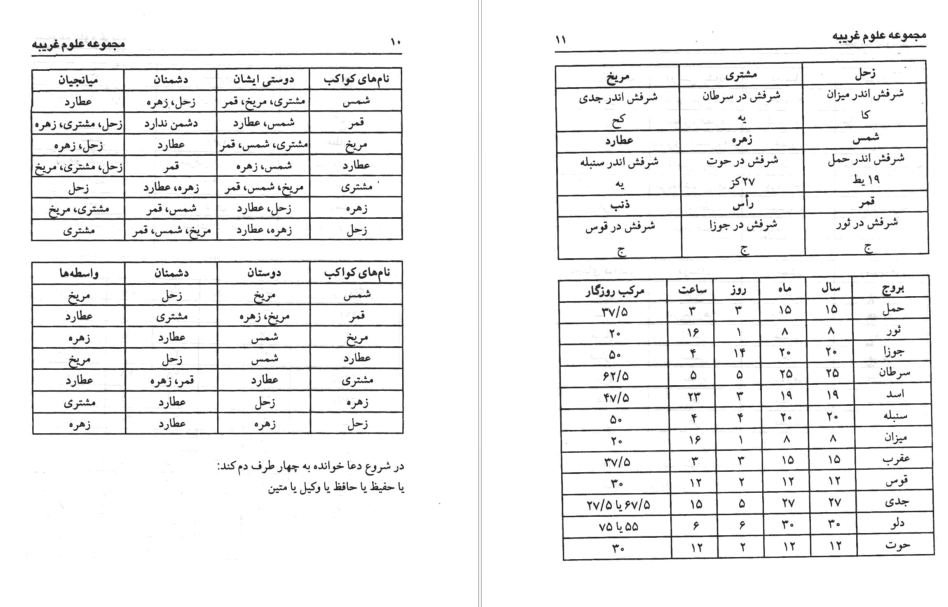 مجموعه علوم غریبه ۱۰
نام‌های کواکب دوستی ایشان دشمنان میانجیان
شمس مشتری، مریخ، قمر زحل، زهره عطارد
قمر شمس، عطارد دشمن ندارد زحل، مشتری، زهره
مریخ مشتری، شمس، قمر عطارد زحل، زهره
عطارد شمس، زهره قمر زحل، مشتری، مریخ
مشتری مریخ، شمس، قمر زهره، عطارد زحل
زهره زحل، عطارد شمس، قمر مشتری، مریخ
زحل زهره، عطارد مریخ، شمس، قمر مشتری
نام‌های کواکب دوستان دشمنان واسطه‌ها
شمس مریخ زحل مریخ
قمر مریخ، زهره مشتری عطارد
مریخ شمس عطارد زهره
عطارد شمس زحل مریخ
مشتری عطارد قمر، زهره عطارد
زهره زحل عطارد مشتری
زحل زهره عطارد زهره
در شروع دعا خوانده به چهار طرف دم کند:
یا حفیظ یا حافظ یا وکیل یا متین
مجموعه علوم غریبه ۱۱
زحل مشتری مریخ
شرفش اندر میزان شرفش در سرطان شرفش اندر جدی
کا یه کح
شمس زهره عطارد
شرفش اندر حمل شرفش در حوت شرفش اندر سنبله
۱۹ یط ۲۷ کز یه
قمر رأس ذنب
شرفش در ثور شرفش در جوزا شرفش در قوس
ج ج ج
بروج سال ماه روز ساعت مرکب روزگار
حمل ۱۵ ۱۵ ۳ ۳ ۳۷/۵
ثور ۸ ۸ ۱ ۱۶ ۲۰
جوزا ۲۰ ۲۰ ۱۴ ۴ ۵۰
سرطان ۲۵ ۲۵ ۵ ۵ ۶۲/۵
اسد ۱۹ ۱۹ ۳ ۲۳ ۴۷/۵
سنبله ۲۰ ۲۰ ۴ ۴ ۵۰
میزان ۸ ۸ ۱ ۱۶ ۲۰
عقرب ۱۵ ۱۵ ۳ ۳ ۳۷/۵
قوس ۱۲ ۱۲ ۲ ۱۲ ۳۰
جدی ۲۷ ۲۷ ۵ ۱۵ ۶۷/۵ یا ۲۷/۵
دلو ۳۰ ۳۰ ۶ ۶ ۵۵ یا ۷۵
حوت ۱۲ ۱۲ ۲ ۱۲ ۳۰